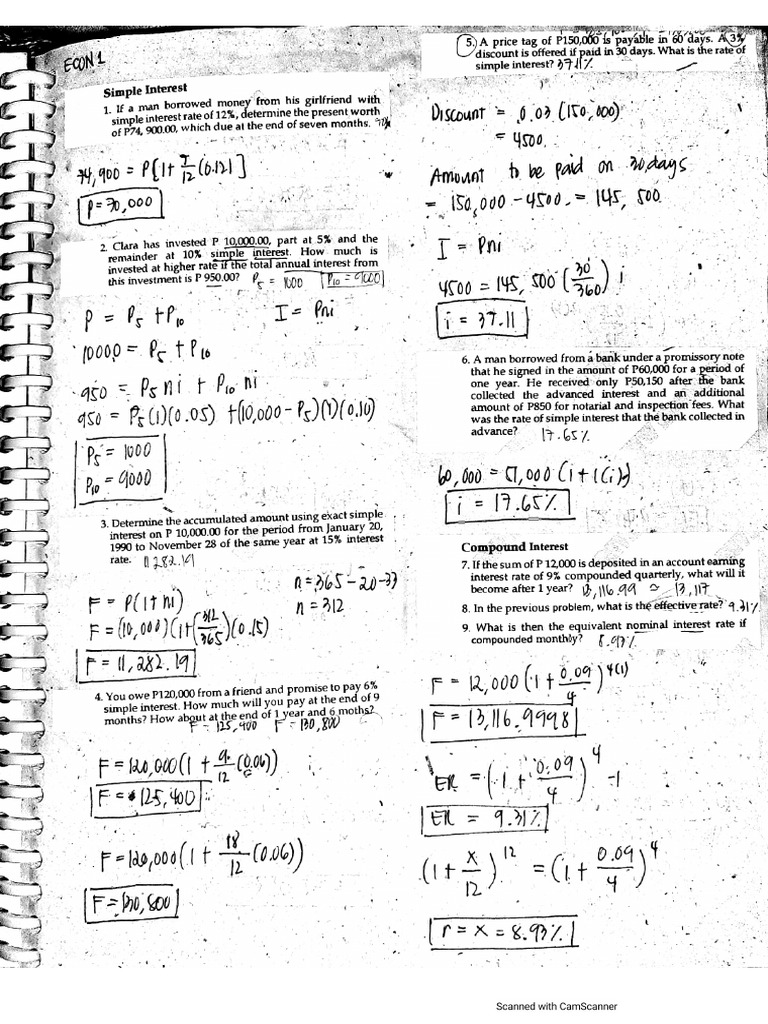 ECON 1
Simple Interest
1. If a man borrowed money from his girlfriend with
simple interest rate of 12%, determine the present worth
of P74, 900.00, which due at the end of seven months.
74,900 = P[1+ 7/12 (0.12)]
P=70,000
2. Clara has invested P 10,000.00, part at 5% and the
remainder at 10% simple interest. How much is
invested at higher rate if the total annual interest from
this investment is P 950.00? P5 = 1000 P10 = 9000
P = P5 + P10 I = Pni
10000 = P5 + P10
950 = P5 ni + P10 ni
950 = P5(1)(0.05) +(10,000 - P5)(1)(0.10)
P5 = 1000
P10 = 9000
3. Determine the accumulated amount using exact simple
interest on P 10,000.00 for the period from January 20,
1990 to November 28 of the same year at 15% interest
rate. 11282.19
n = 365 - 20 - 33
n = 312
F = P(1+ni)
F = (10,000)(1+(312/365)(0.15)
F = 11,282.19
4. You owe P120,000 from a friend and promise to pay 6%
simple interest. How much will you pay at the end of 9
months? How about at the end of 1 year and 6 moths?
F = 125,400 F = 130,800
F = 120,000(1 + 9/12 (0.06))
F = 125,400
F = 120,000(1 + 18/12 (0.06))
F = 130,800
5. A price tag of P150,000 is payable in 60 days. A 3%
discount is offered if paid in 30 days. What is the rate of
simple interest? 37.11%
Discount = 0.03 (150,000)
= 4500
Amount to be paid on 30 days
= 150,000 - 4500 = 145,500
I = Pni
4500 = 145,500 (30/360) i
i = 37.11
6. A man borrowed from a bank under a promissory note
that he signed in the amount of P60,000 for a period of
one year. He received only P50,150 after the bank
collected the advanced interest and an additional
amount of P850 for notarial and inspection fees. What
was the rate of simple interest that the bank collected in
advance? 17.65%
60,000 = 51,000 (1+1(i))
i = 17.65%
Compound Interest
7. If the sum of P 12,000 is deposited in an account earning
interest rate of 9% compounded quarterly, what will it
become after 1 year? 13,116.99 ≈ 13,117
8. In the previous problem, what is the effective rate? 9.31%
9. What is then the equivalent nominal interest rate if
compounded monthly? 8.93%
F = 12,000 (1 + 0.09/4)^4(1)
F = 13,116.9998
ER = (1 + 0.09/4)^4 -1
ER = 9.31%
(1 + x/12)^12 = (1 + 0.09/4)^4
r = x = 8.93%
Scanned with CamScanner